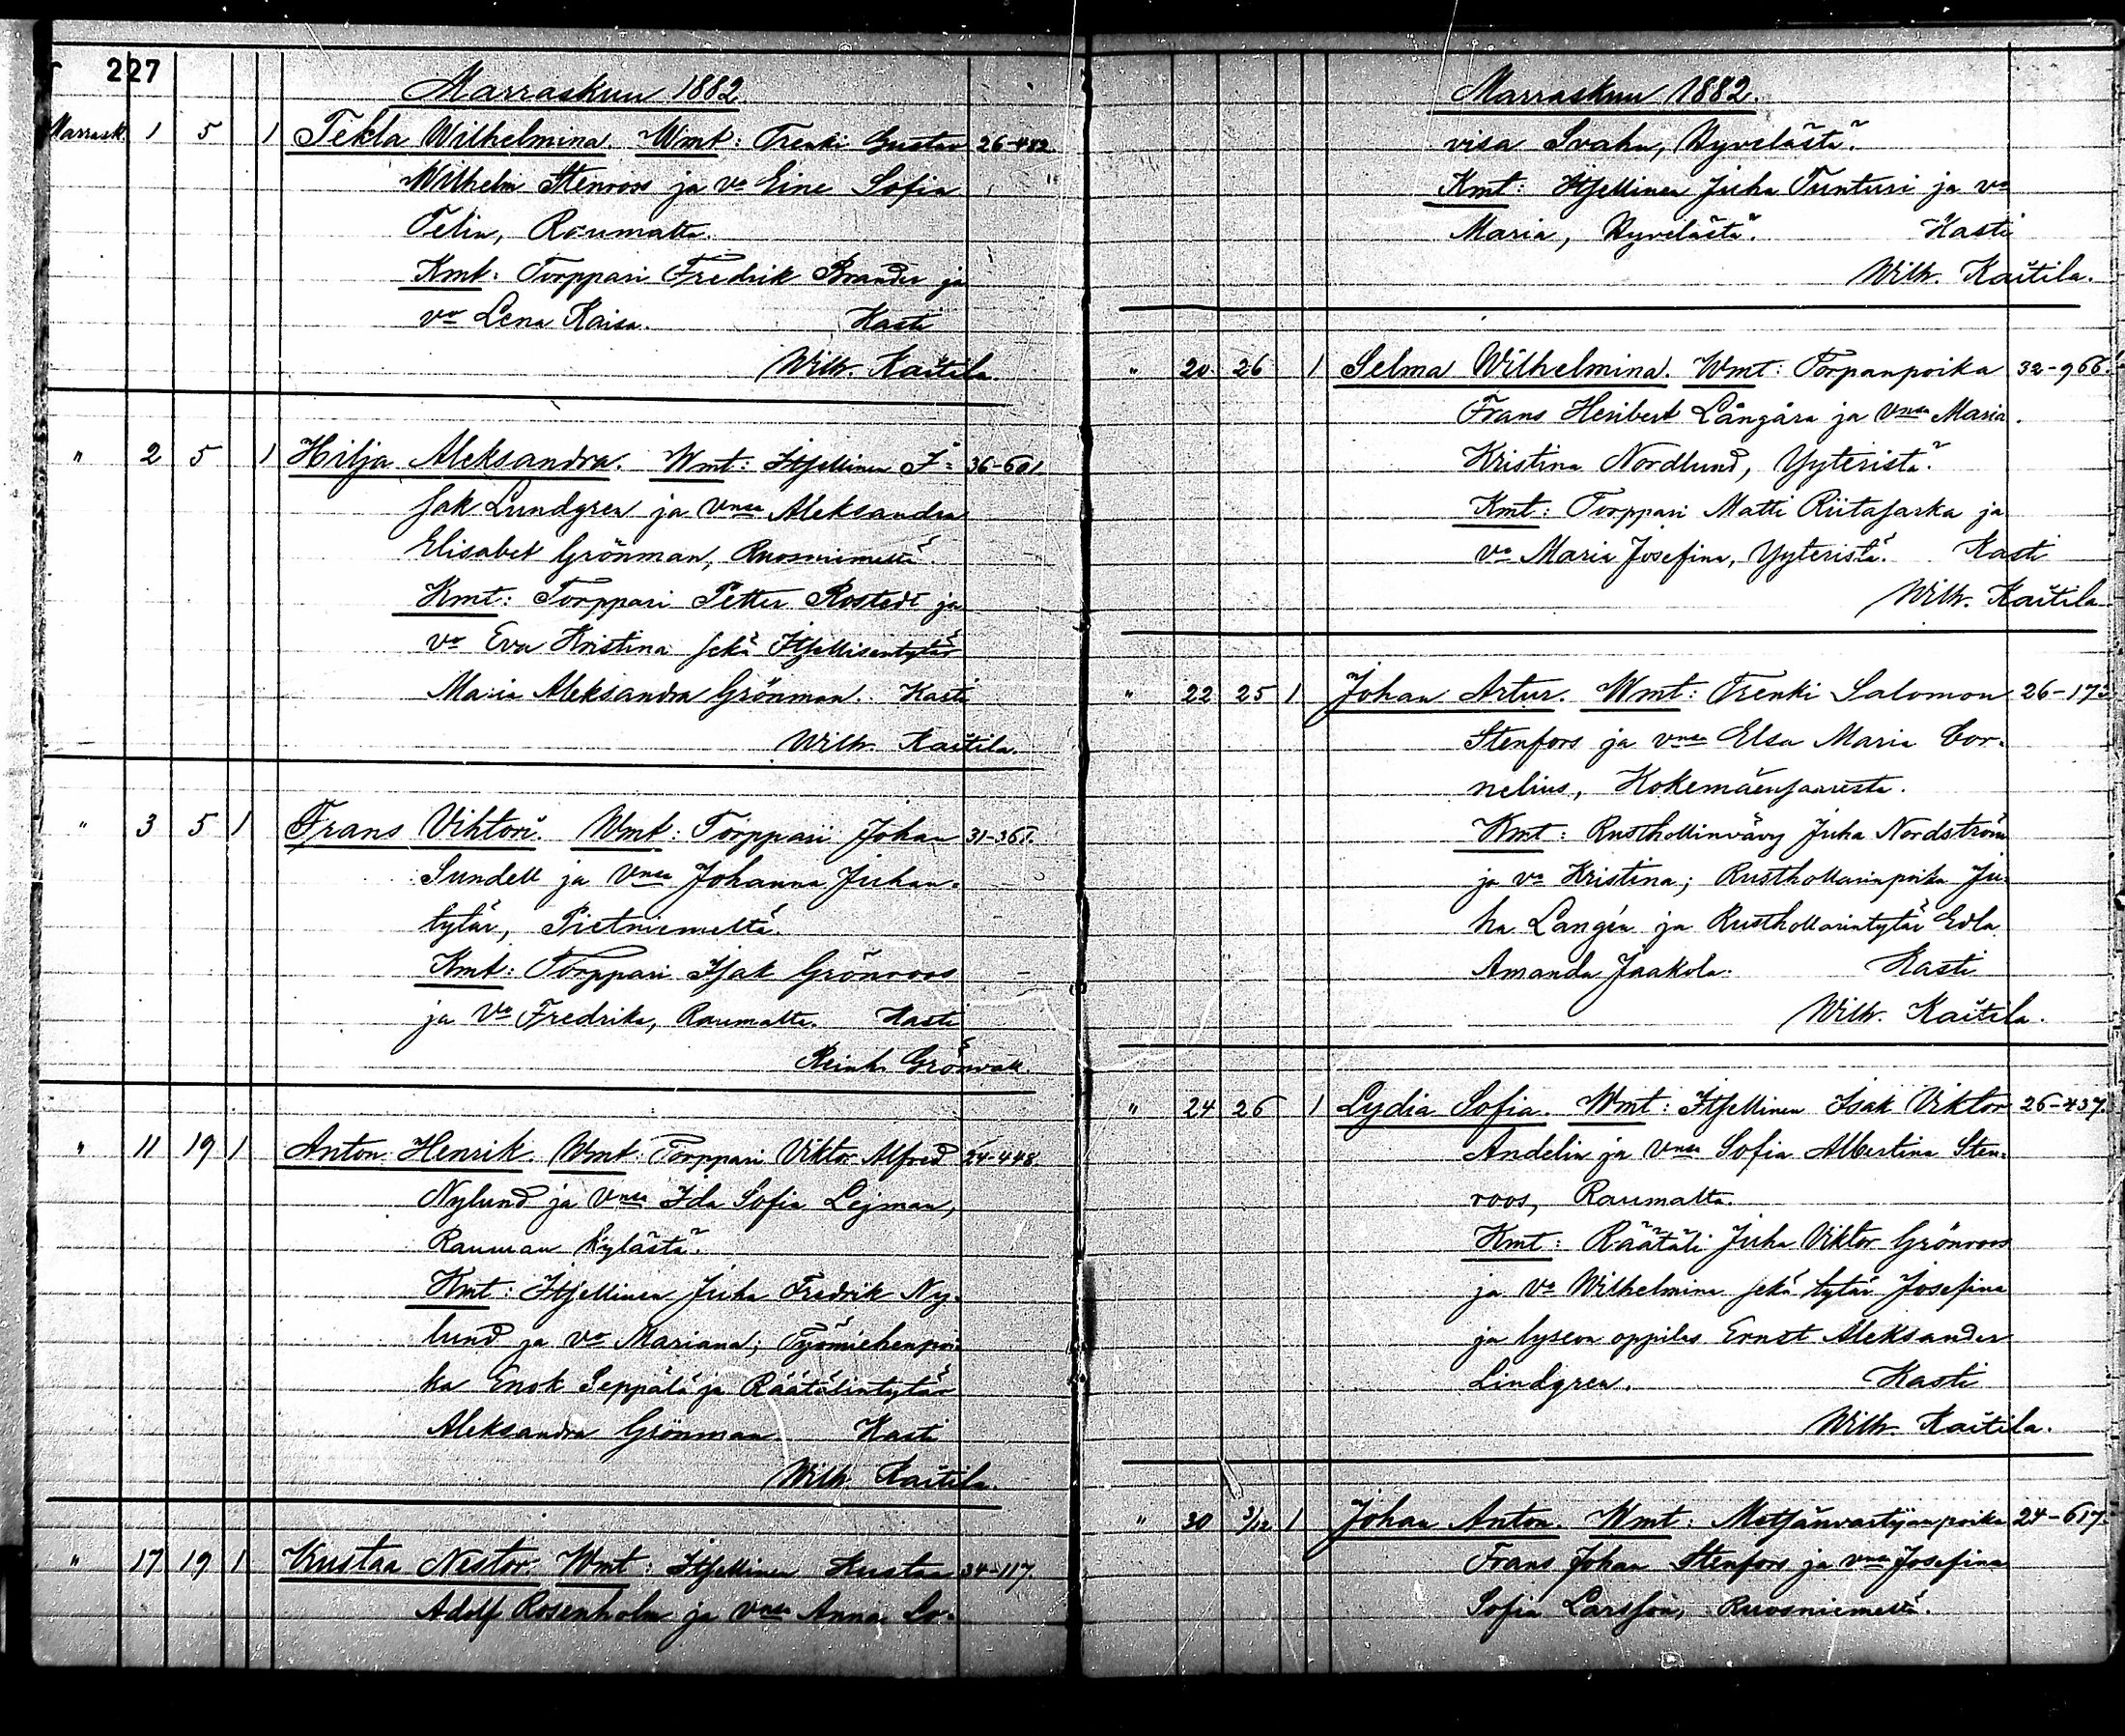 227
Marraskuu 1882.
Marrask. 1 5 1 Tekla Wilhelmina. Wmt: Trenki Gustav 26-482
Wilhelm Stenroos ja vo Eine Sofia
Telin, Raumalta.
Kmt: Torppari Fredrik Brander ja
vo Lena Kaisa. Kasti
Wilh. Kaitila.
" 2 5 1 Hilja Aleksandra. Wmt: Itsellinen I= 36-601
sak Lundgren ja vnsa Aleksandra
Elisabet Grönman, Ruosniemeltä.
Kmt: Torppari Petter Rostedt ja
vo Eva Kristina sekä Itsellisentytär
Maria Aleksandra Grönman. Kasti
Wilh. Kaitila.
" 3 5 1 Frans Vihtori. Wmt: Torppari Johan 31-367.
Sundell ja vnsa Johanna Juhan-
tytär, Pietniemeltä.
Kmt: Torppari Isak Grönroos
ja vo Fredrika, Raumalta. Kasti
Reinh. Grönvall.
" 11 19 1 Anton Henrik. Wmt: Torppari Viktor Alfred 24-448.
Nylund ja vnsa Ida Sofia Lejman,
Rauman kylästä.
Kmt: Itsellinen Juha Fredrik Ny-
lund ja vo Mariana; Työmiehenpoi-
ka Enok Seppälä ja Räätälintytär
Aleksandra Grönman Kasti
Wilh. Kaitila.
" 17 19 1 Kustaa Nestor. Wmt: Itsellinen Kustaa 34-117.
Adolf Rosenholm ja vnsa Anna Lo-
Marraskuu 1882.
visa Svahn, Hyvelästä.
Kmt: Itsellinen Juha Tunturi ja vo
Maria, Hyvelästä. Kasti
Wilh. Kaitila.
" 20 26 1 Selma Wilhelmina. Wmt: Torpanpoika 32-966.
Frans Heribert Långåra ja vnsa Maria
Kristina Nordlund, Yyteristä.
Kmt: Torppari Matti Riitasarka ja
vo Maria Josefina, Yyteristä. Kasti
Wilh. Kaitila
" 22 25 1 Johan Artur. Wmt: Trenki Salomon 26-173
Stenfors ja vnsa Elsa Maria Cor-
nelius, Kokemäensaaresta.
Kmt: Rusthollinvävy Juha Nordström
ja vo Kristina; Rusthollarinpoika Ju-
ha Langén ja Rusthollarintytär Edla
Amanda Jaakola. Kasti
Wilh. Kaitila.
" 24 26 1 Lydia Sofia. Wmt: Itsellinen Isak Viktor 26-437.
Andelin ja vnsa Sofia Albertina Sten-
roos, Raumalta.
Kmt: Räätäli Juha Viktor Grönroos
ja vo Wilhelmina sekä tytär Josefina
ja lyseon oppilas Ernst Aleksander
Lindgren. Kasti
Wilh. Kaitila.
" 30 3/12 1 Johan Anton. Wmt: Metsänvartijanpoika 24-617.
Frans Johan Stenfors ja vnsa Josefina
Sofia Larsson, Ruosniemeltä.